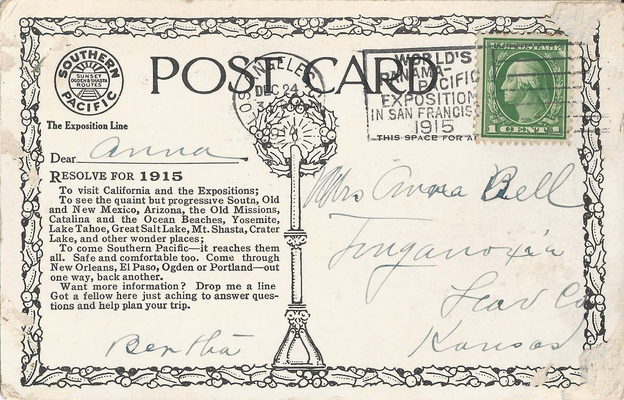 SOUTHERN PACIFIC
SUNSET
OGDEN & SHASTA
ROUTES
POST CARD
LOS ANGELES
DEC 24
WORLD'S
PANAMA-
PACIFIC
EXPOSITION
IN SAN FRANCISCO
1915
1 CENT 1
THIS SPACE FOR
The Exposition Line
Dear Anna
RESOLVE FOR 1915
To visit California and the Expositions;
To see the quaint but progressive South, Old
and New Mexico, Arizona, the Old Missions,
Catalina and the Ocean Beaches, Yosemite,
Lake Tahoe, Great Salt Lake, Mt. Shasta, Crater
Lake, and other wonder places;
To come Southern Pacific—it reaches them
all. Safe and comfortable too. Come through
New Orleans, El Paso, Ogden or Portland—out
one way, back another.
Want more information? Drop me a line
Got a fellow here just aching to answer ques-
tions and help plan your trip.
Bertha
Mrs Anna Bell
Tonganoxie
Leav Co
Kansas